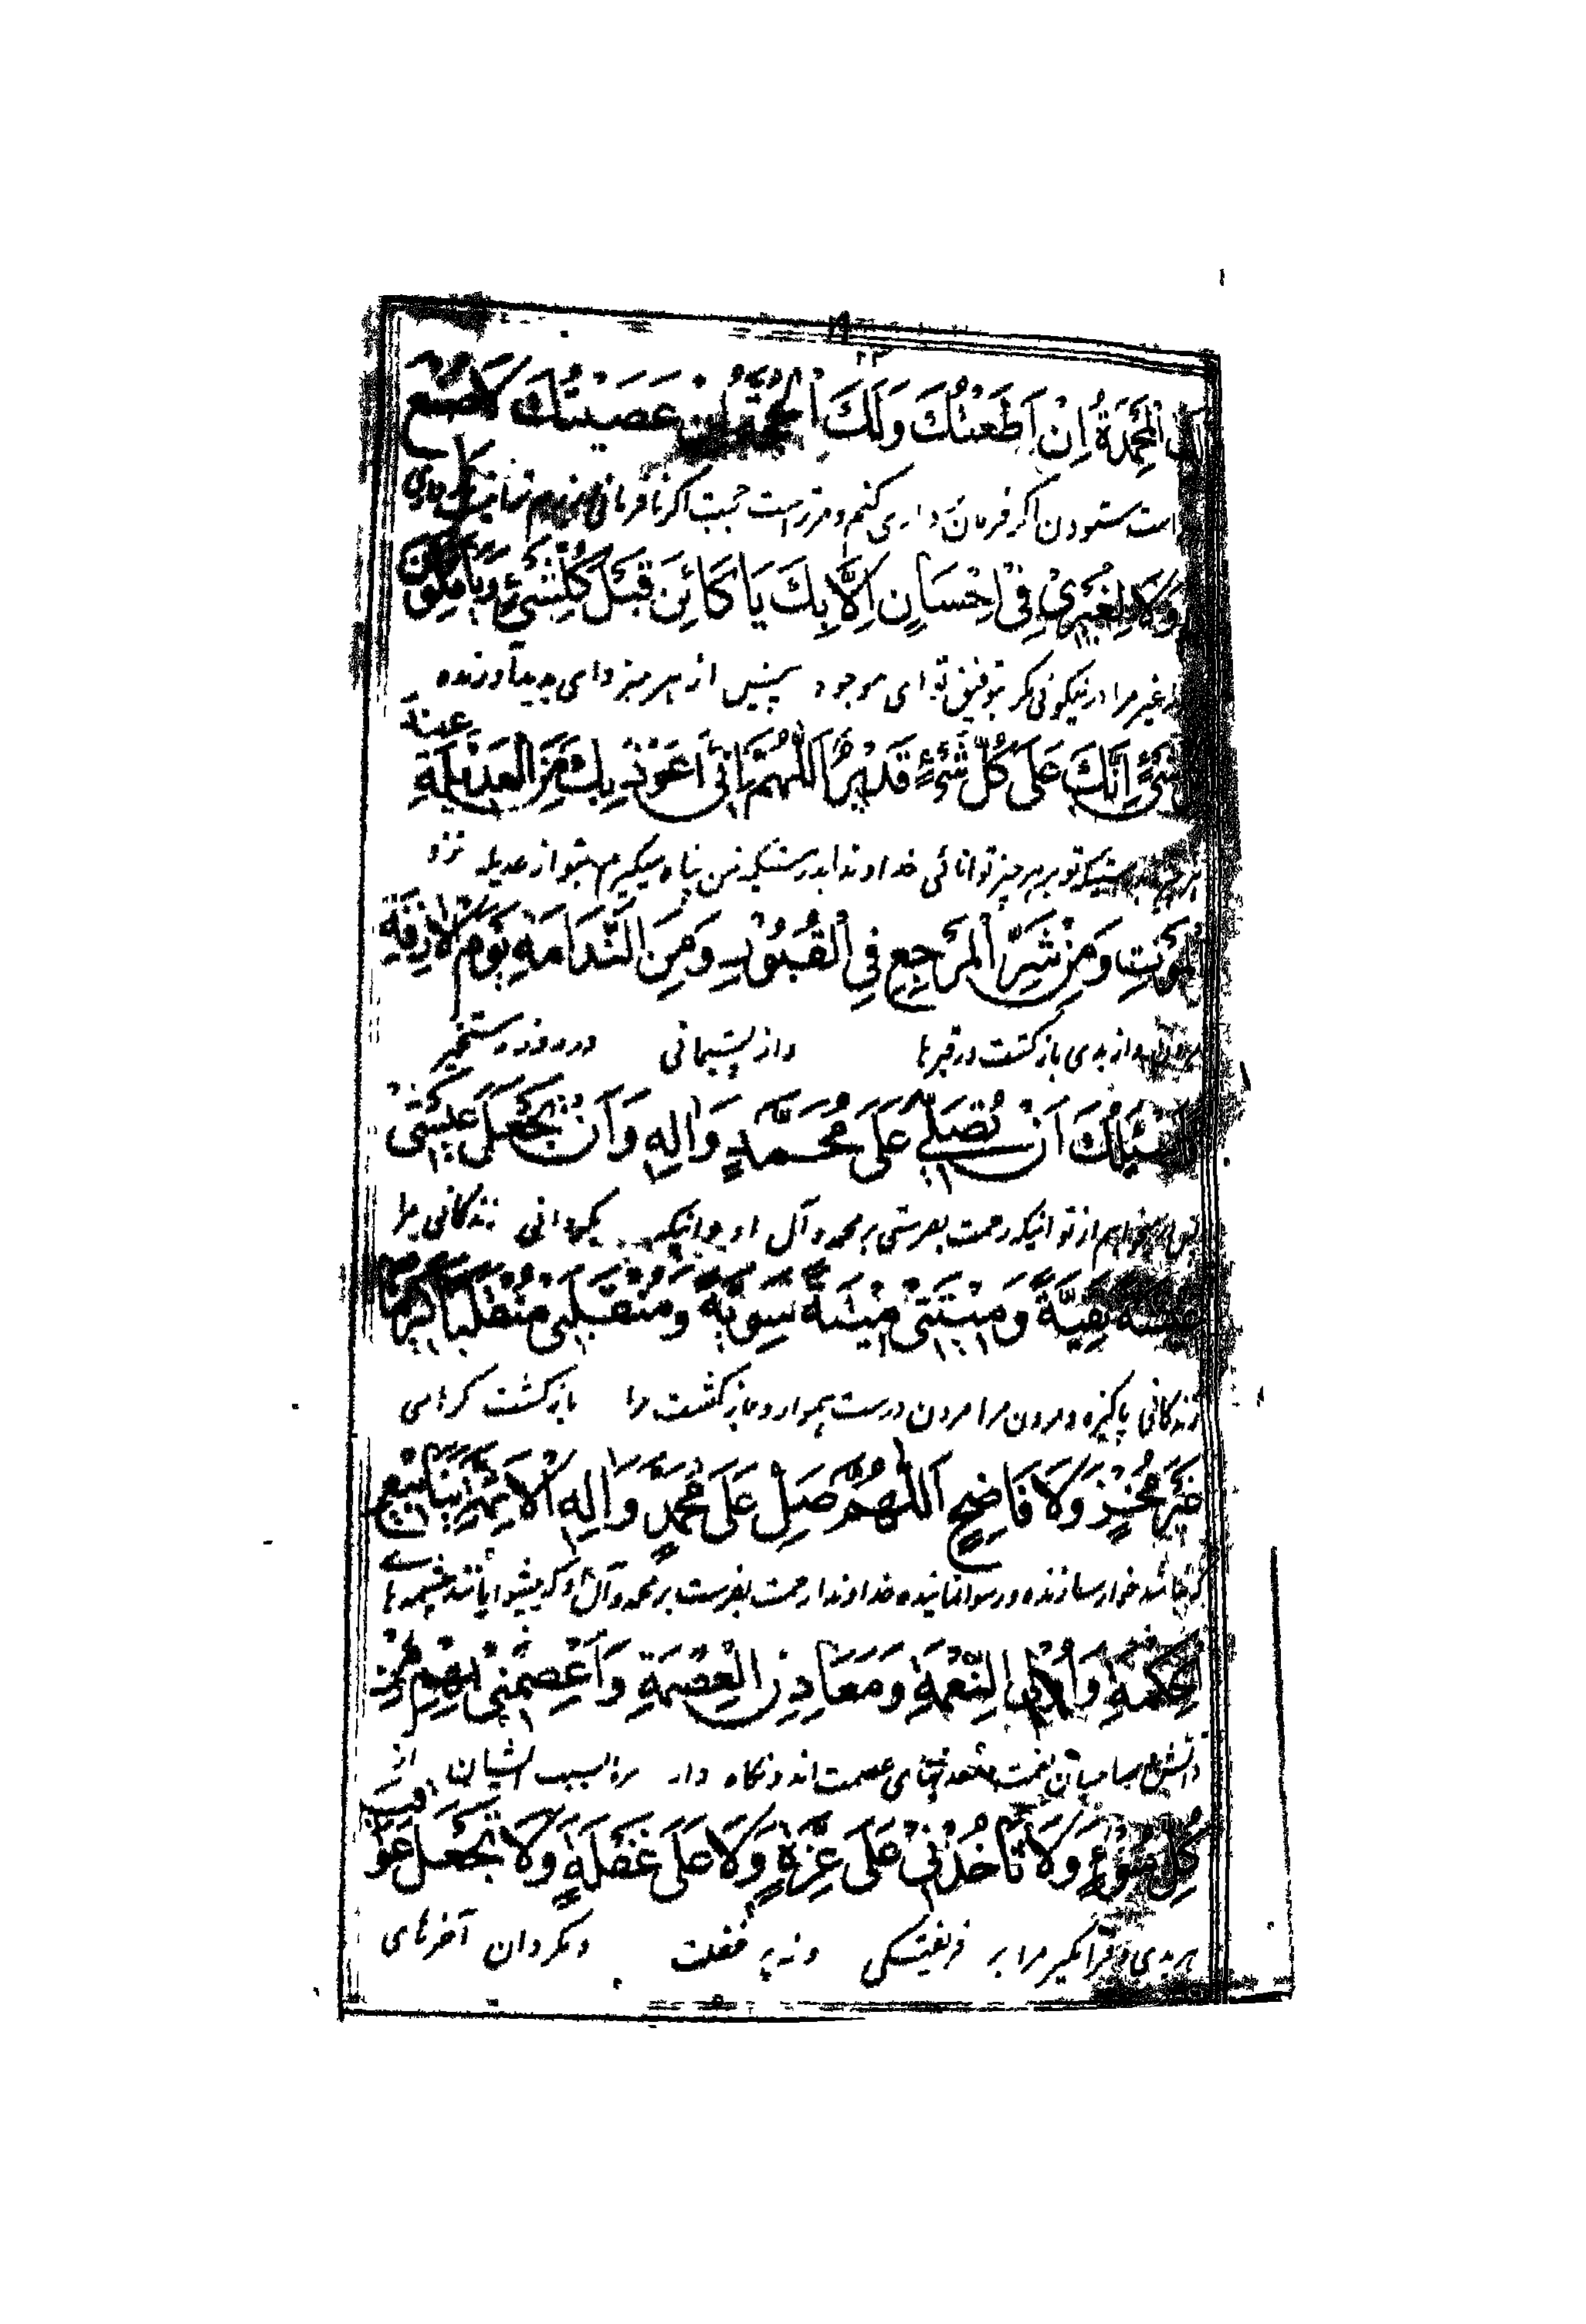 لك المحمدة اِنْ اَطَعْتُكَ وَلَكَ الحجة اِنْ عَصَيْتُكَ لَا صُنْعَ لى
است ستودن اگر فرمان داری کنم و مرتراست حجت اگر نافرمانی
وَلَا لِغَيْرِى فِى اِحْسَانٍ اِلَّا بِكَ يَا كَائِنَ قَبْلَ كُلِّ شَىْءٍ وَيَا مُكَوِّنَ
غیر مرا در نیکوئی مگر بتوفیق تو ای موجود پیش از هر چیز و ای پدید آورنده
كُلِّ شَىْءٍ اِنَّكَ عَلَى كُلِّ شَىْءٍ قَدِيْرٌ اَللّٰهُمَّ اِنِّى اَعُوْذُ بِكَ مِنَ الْعَدِيْلَةِ عِنْدَ
هر چیز بدرستیکه تو بر هر چیز توانائی خداوندا بدرستیکه من پناه میگیرم بتو از عدیله نزد
الْمَوْتِ وَمِنْ شَرِّ الْمَرْجِعِ فِى الْقُبُوْرِ وَمِنَ النَّدَامَةِ يَوْمَ الْاٰزِفَةِ
مردن و از بدی بازگشت در قبرها و از پشیمانی در روز رستخیز
فَاَسْئَلُكَ اَنْ تُصَلِّىَ عَلَى مُحَمَّدٍ وَاٰلِهِ وَاَنْ تَجْعَلَ عَيْشَتِىْ
پس میخواهم از تو اینکه رحمت بفرستی بر محمد و آل او و اینکه بگردانی زندگانی مرا
عِيْشَةً نَقِيَّةً وَمِيْتَتِىْ مِيْتَةً سَوِيَّةً وَمُنْقَلَبِىْ مُنْقَلَبًا كَرِيْمًا
زندگانی پاکیزه و مردن مرا مردن درست هموار و بازگشت مرا بازگشت گرامی
غَيْرَ مُخْزٍ وَلَا فَاضِحٍ اَللّٰهُمَّ صَلِّ عَلَى مُحَمَّدٍ وَاٰلِهِ الْاَئِمَّةِ يَنَابِيْعِ
که نباشد خوار سازنده و رسوا نماینده خداوندا رحمت بفرست بر محمد و آل او که پیشوایانند چشمه های
الْحِكْمَةِ وَاُولِى النِّعْمَةِ وَمَعَادِنِ الْعِصْمَةِ وَاعْصِمْنِىْ بِهِمْ مِنْ
دانش صاحبان نعمت معدنهای عصمت اند و نگاه دار مرا بسبب ایشان از
كُلِّ سُوْءٍ وَلَا تَأْخُذْنِىْ عَلَى غِرَّةٍ وَلَا عَلَى غَفْلَةٍ وَلَا تَجْعَلْ عَوَاقِبَ
هر بدی و فرا مگیر مرا بر فریفتگی و نه بر غفلت و مگردان آخرهای